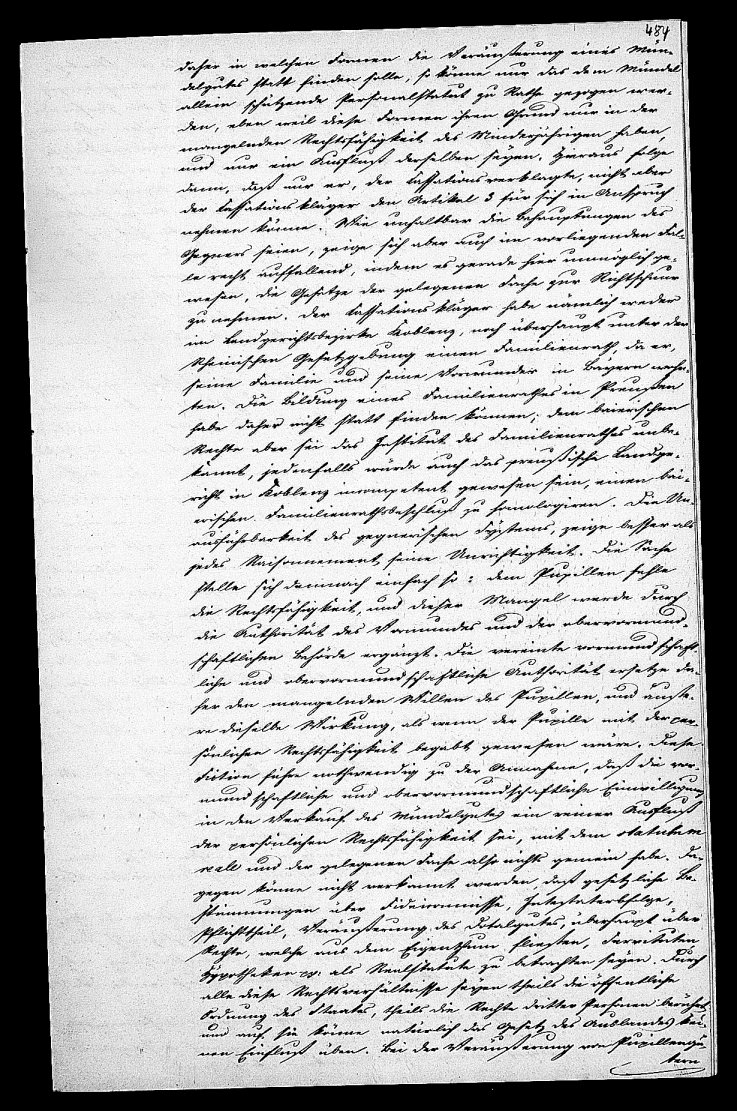 484
daher in welchen Formen die Veräußerung eines Mün-
delgutes statt finden solle, so könne nur das dem Mündel
allein schützende Personalstatut zu Rathe gezogen wer-
den, eben weil diese Formen ihren Grund nur in der
mangelnden Rechtsfähigkeit des Minderjährigen haben,
und nur ein Ausfluß derselben seyen. Hieraus folge
dann, daß nur er, der Cassationsverklagte, nicht aber
der Cassationskläger den Artikel 3 für sich in Anspruch
nehmen könne. Wie unhaltbar die Behauptungen des
Gegners seien, zeige sich aber auch im vorliegenden Fal-
le recht auffallend, indem es gerade hier unmöglich ge-
wesen, die Gesetze der gelegenen Sache zur Richtschnur
zu nehmen. Der Cassationskläger habe nämlich weder
im Landgerichtsbezirke Koblenz, noch überhaupt unter der
Rheinischen Gesetzgebung einen Familienrath, da er,
seine Familie und seine Vormünder in Bayern wohn-
ten. Die Bildung eines Familienrathes in Preußen
habe daher nicht statt finden können; dem baierischen
Rechte aber sei das Institut des Familienrathes unbe-
kannt, jedenfalls würde auch das preußische Landge-
richt in Koblenz incompetent gewesen sein, einen bai-
erischen Familienrathsbeschluß zu homologiren. Die Un-
ausführbarkeit des gegnerischen Systems, zeige besser als
jedes Raisonnement, seine Unrichtigkeit. Die Sache
stelle sich demnach einfach so: dem Pupillen fehle
die Rechtsfähigkeit, und dieser Mangel werde durch
die Authorität des Vormundes und der obervormund-
schaftlichen Behörde ergänzt. Die vereinte vormundschaft-
liche und obervormundschaftliche Authorität ersetze da-
her den mangelnden Willen des Pupillen, und äuße-
re dieselbe Wirkung, als wenn der Pupille mit der per-
sönlichen Rechtsfähigkeit begabt gewesen wäre. Diese
Fiction führe nothwendig zu der Annahme, daß die vor-
mundschaftliche und obervormundschaftliche Einwilligung
in den Verkauf des Mündelgutes ein reiner Ausfluß
der persönlichen Rechtsfähigkeit sei, mit dem statutum
reale und der gelegenen Sache also nichts gemein habe. Da-
gegen könne nicht verkannt werden, daß gesetzliche Be-
stimmungen über Fideicommisse, Intestaterbfolge,
Pflichttheil, Veräußerung des Dotalgutes, überhaupt über
Rechte, welche aus dem Eigenthum fließen, Servituten
Hypotheken pp. als Realstatute zu betrachten seyen. Durch
alle diese Rechtsverhältnisse seyen theils die öffentliche
Ordnung des Staates, theils die Rechte dritter Personen berührt,
und auf sie könne natürlich das Gesetz des Auslandes kei-
nen Einfluß üben. Bei der Veräußerung von Pupillengü-
tern